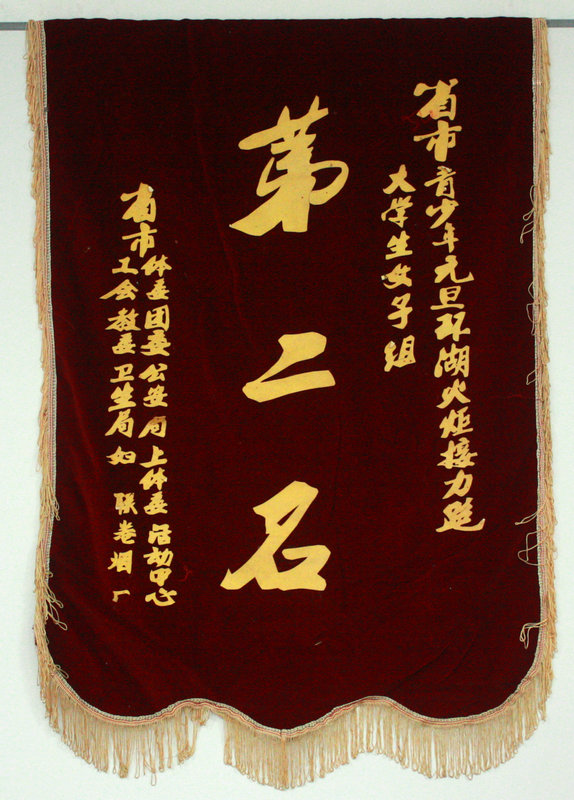 省市青少年元旦环湖火炬接力跑
大学生女子组
第二名
省市体委团委公安局上体委活动中心
工会教委卫生局妇联卷烟厂